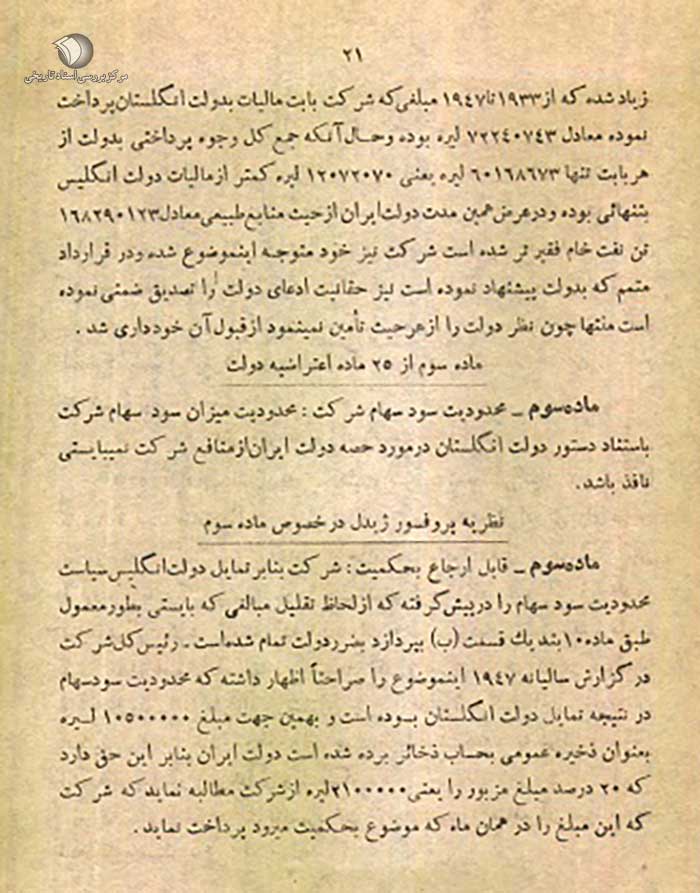 مرکز بررسی اسناد تاریخی
۲۱
زیاد شده که از ۱۹۳۳ تا ۱۹۴۷ مبلغی که شرکت بابت مالیات بدولت انگلستان پرداخت
نموده معادل ۷۲۲۴۰۷۴۳ لیره بوده و حال آنکه جمع کل وجوه پرداختی بدولت از
هر بابت تنها ۶۰۱۶۸۶۷۳ لیره یعنی ۱۲۰۷۲۰۷۰ لیره کمتر از مالیات دولت انگلیس
بتنهائی بوده و در عرض همین مدت دولت ایران از حیث منابع طبیعی معادل ۱۶۸۲۹۰۱۲۳
تن نفت خام فقیر تر شده است شرکت نیز خود متوجه اینموضوع شده ودر قرارداد
متمم که بدولت پیشنهاد نموده است نیز حقانیت ادعای دولت را تصدیق ضمنی نموده
است منتها چون نظر دولت را از هر حیث تأمین نمینمود از قبول آن خودداری شد .
ماده سوم از ۲۵ ماده اعتراضیه دولت
ماده سوم ـ محدودیت سود سهام شرکت : محدودیت میزان سود سهام شرکت
باستناد دستور دولت انگلستان درمورد حصه دولت ایران از منافع شرکت نمیبایستی
نافذ باشد .
نظریه پروفسور ژیدل در خصوص ماده سوم
ماده سوم ـ قابل ارجاع بحکمیت : شرکت بنابر تمایل دولت انگلیس سیاست
محدودیت سود سهام را در پیش گرفته که از لحاظ تقلیل مبالغی که بایستی بطور معمول
طبق ماده ۱۰ بند یك قسمت (ب) بپردازد بضرر دولت تمام شده است ـ رئیس کل شرکت
در گزارش سالیانه ۱۹۴۷ اینموضوع را صراحتاً اظهار داشته که محدودیت سود سهام
در نتیجه تمایل دولت انگلستان بوده است و بهمین جهت مبلغ ۱۰۵۰۰۰۰۰ لیره
بعنوان ذخیره عمومی بحساب ذخائر برده شده است دولت ایران بنابر این حق دارد
که ۲۰ درصد مبلغ مزبور را یعنی ۲۱۰۰۰۰۰ لیره از شرکت مطالبه نماید که شرکت
که این مبلغ را در همان ماه که موضوع بحکمیت میرود پرداخت نماید .